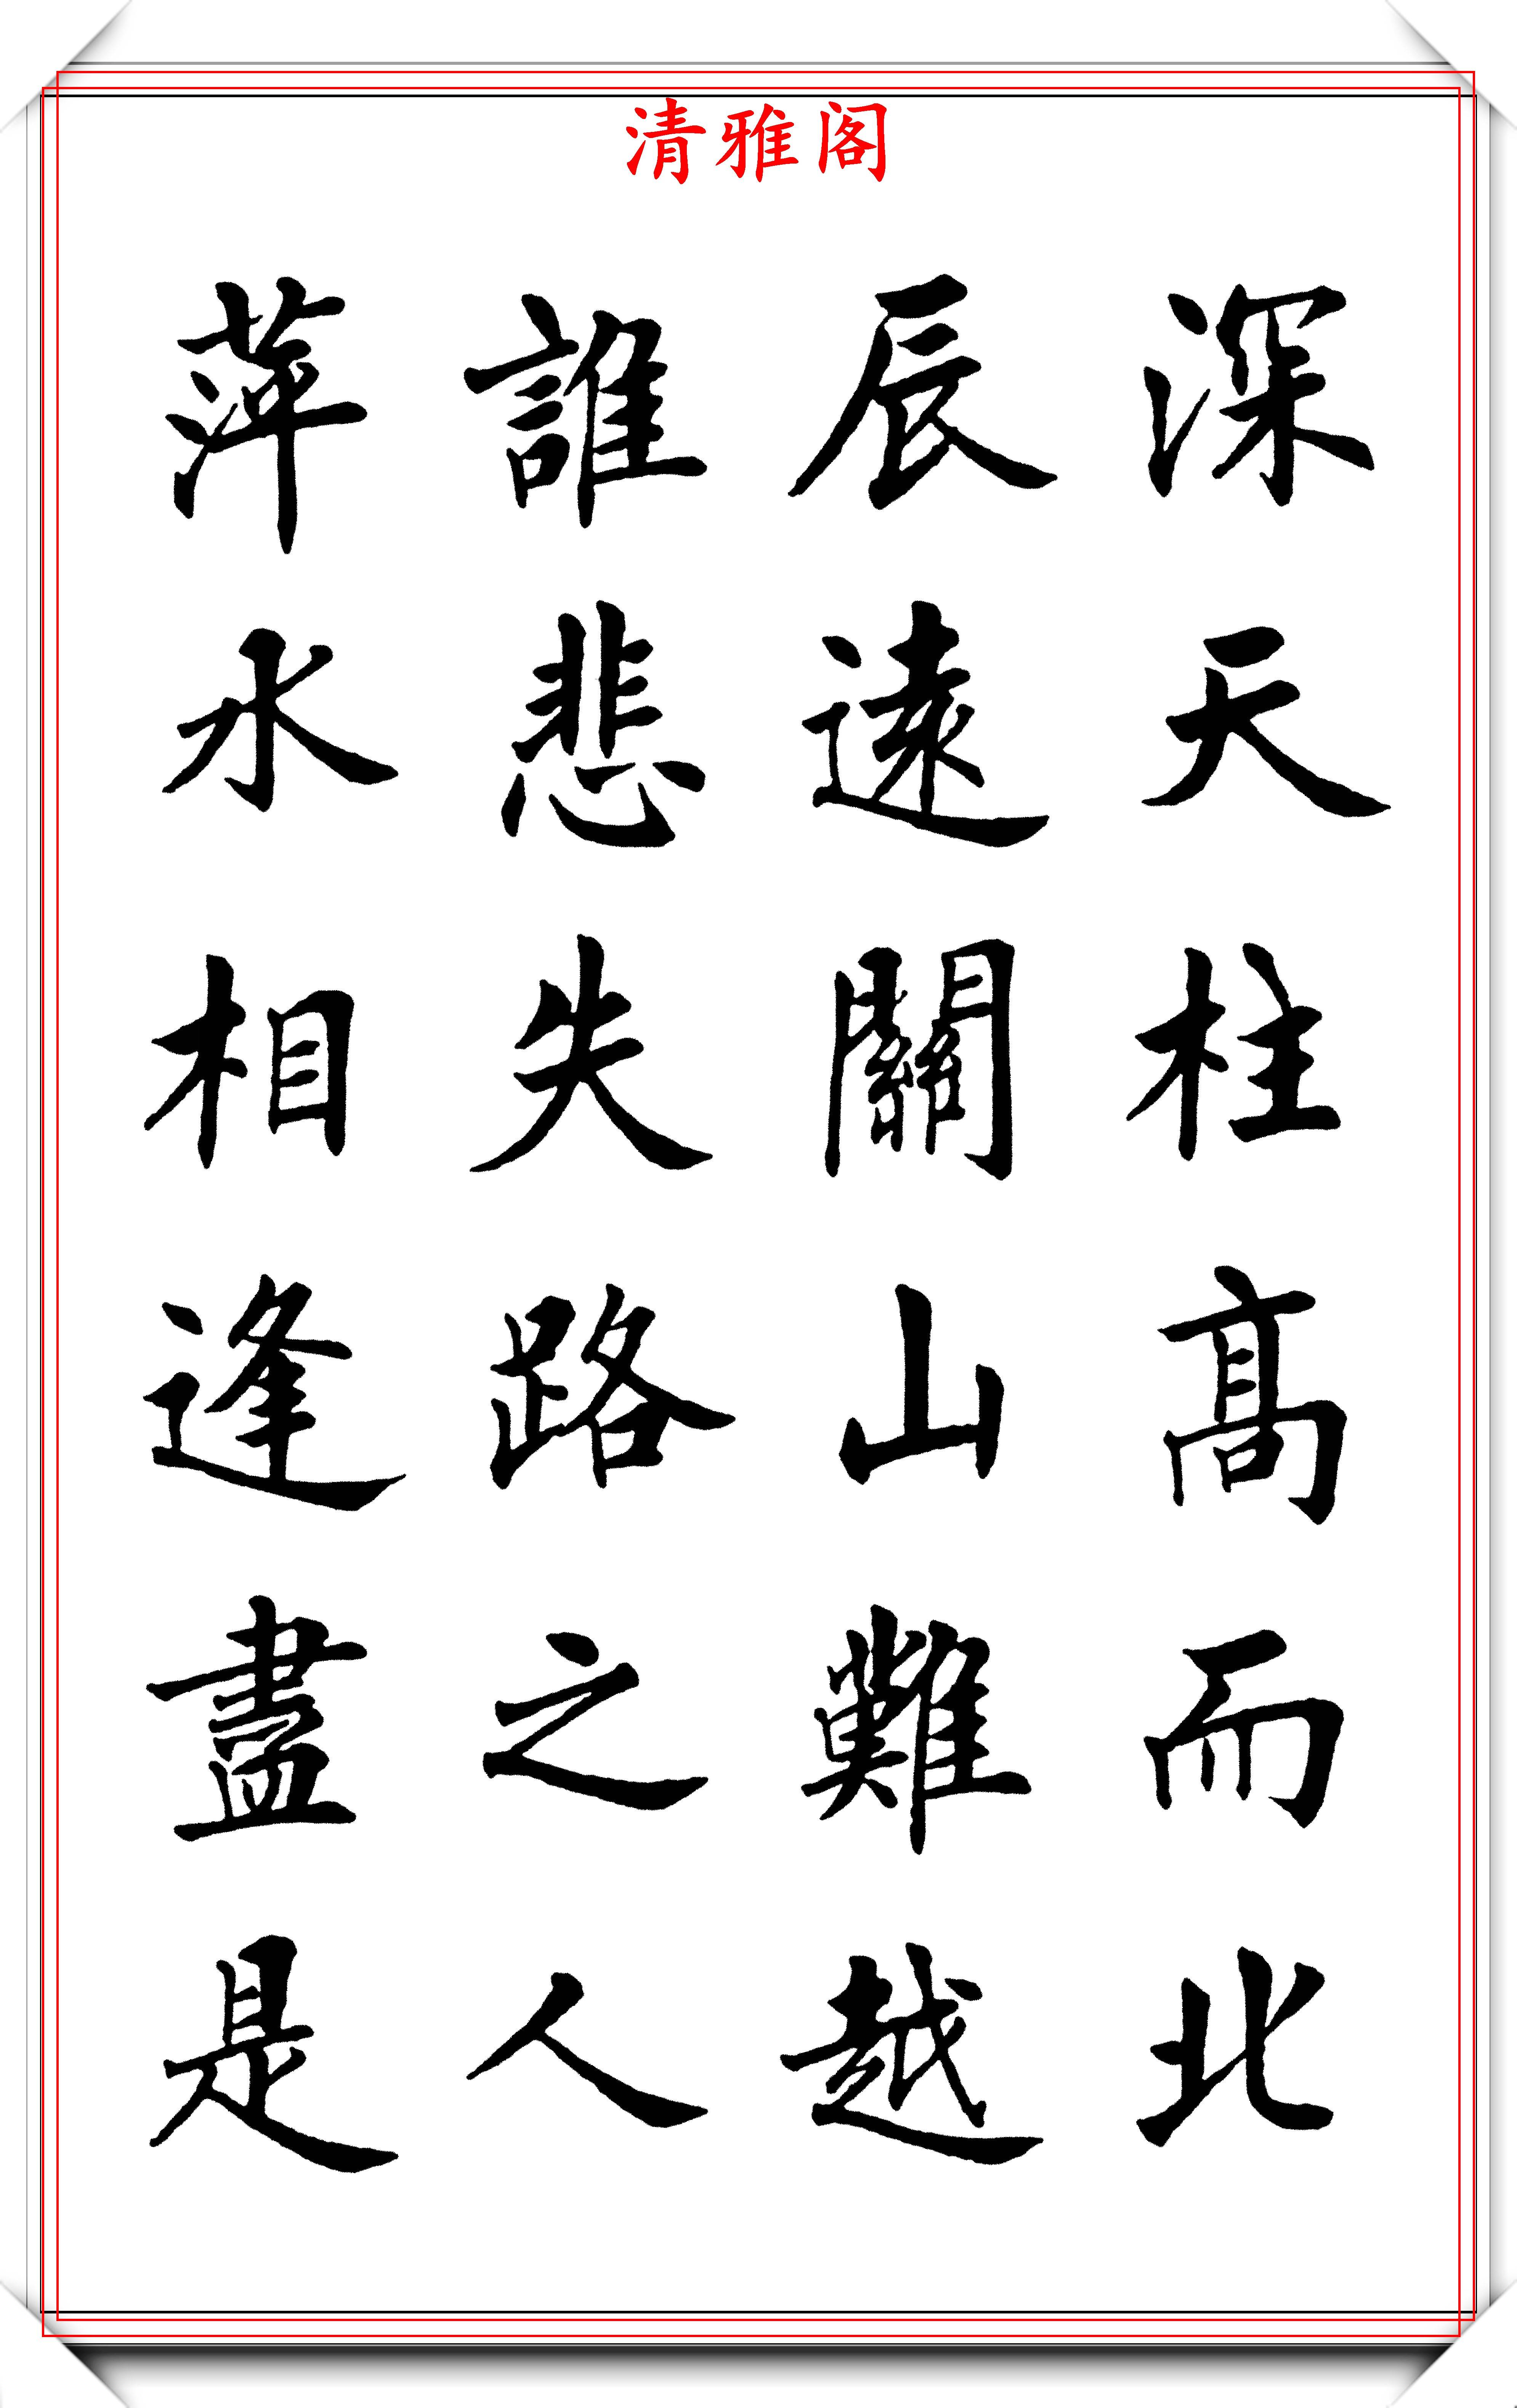 清雅阁
深天柱高而北
辰遠關山難越
誰悲失路之人
萍水相逢盡是